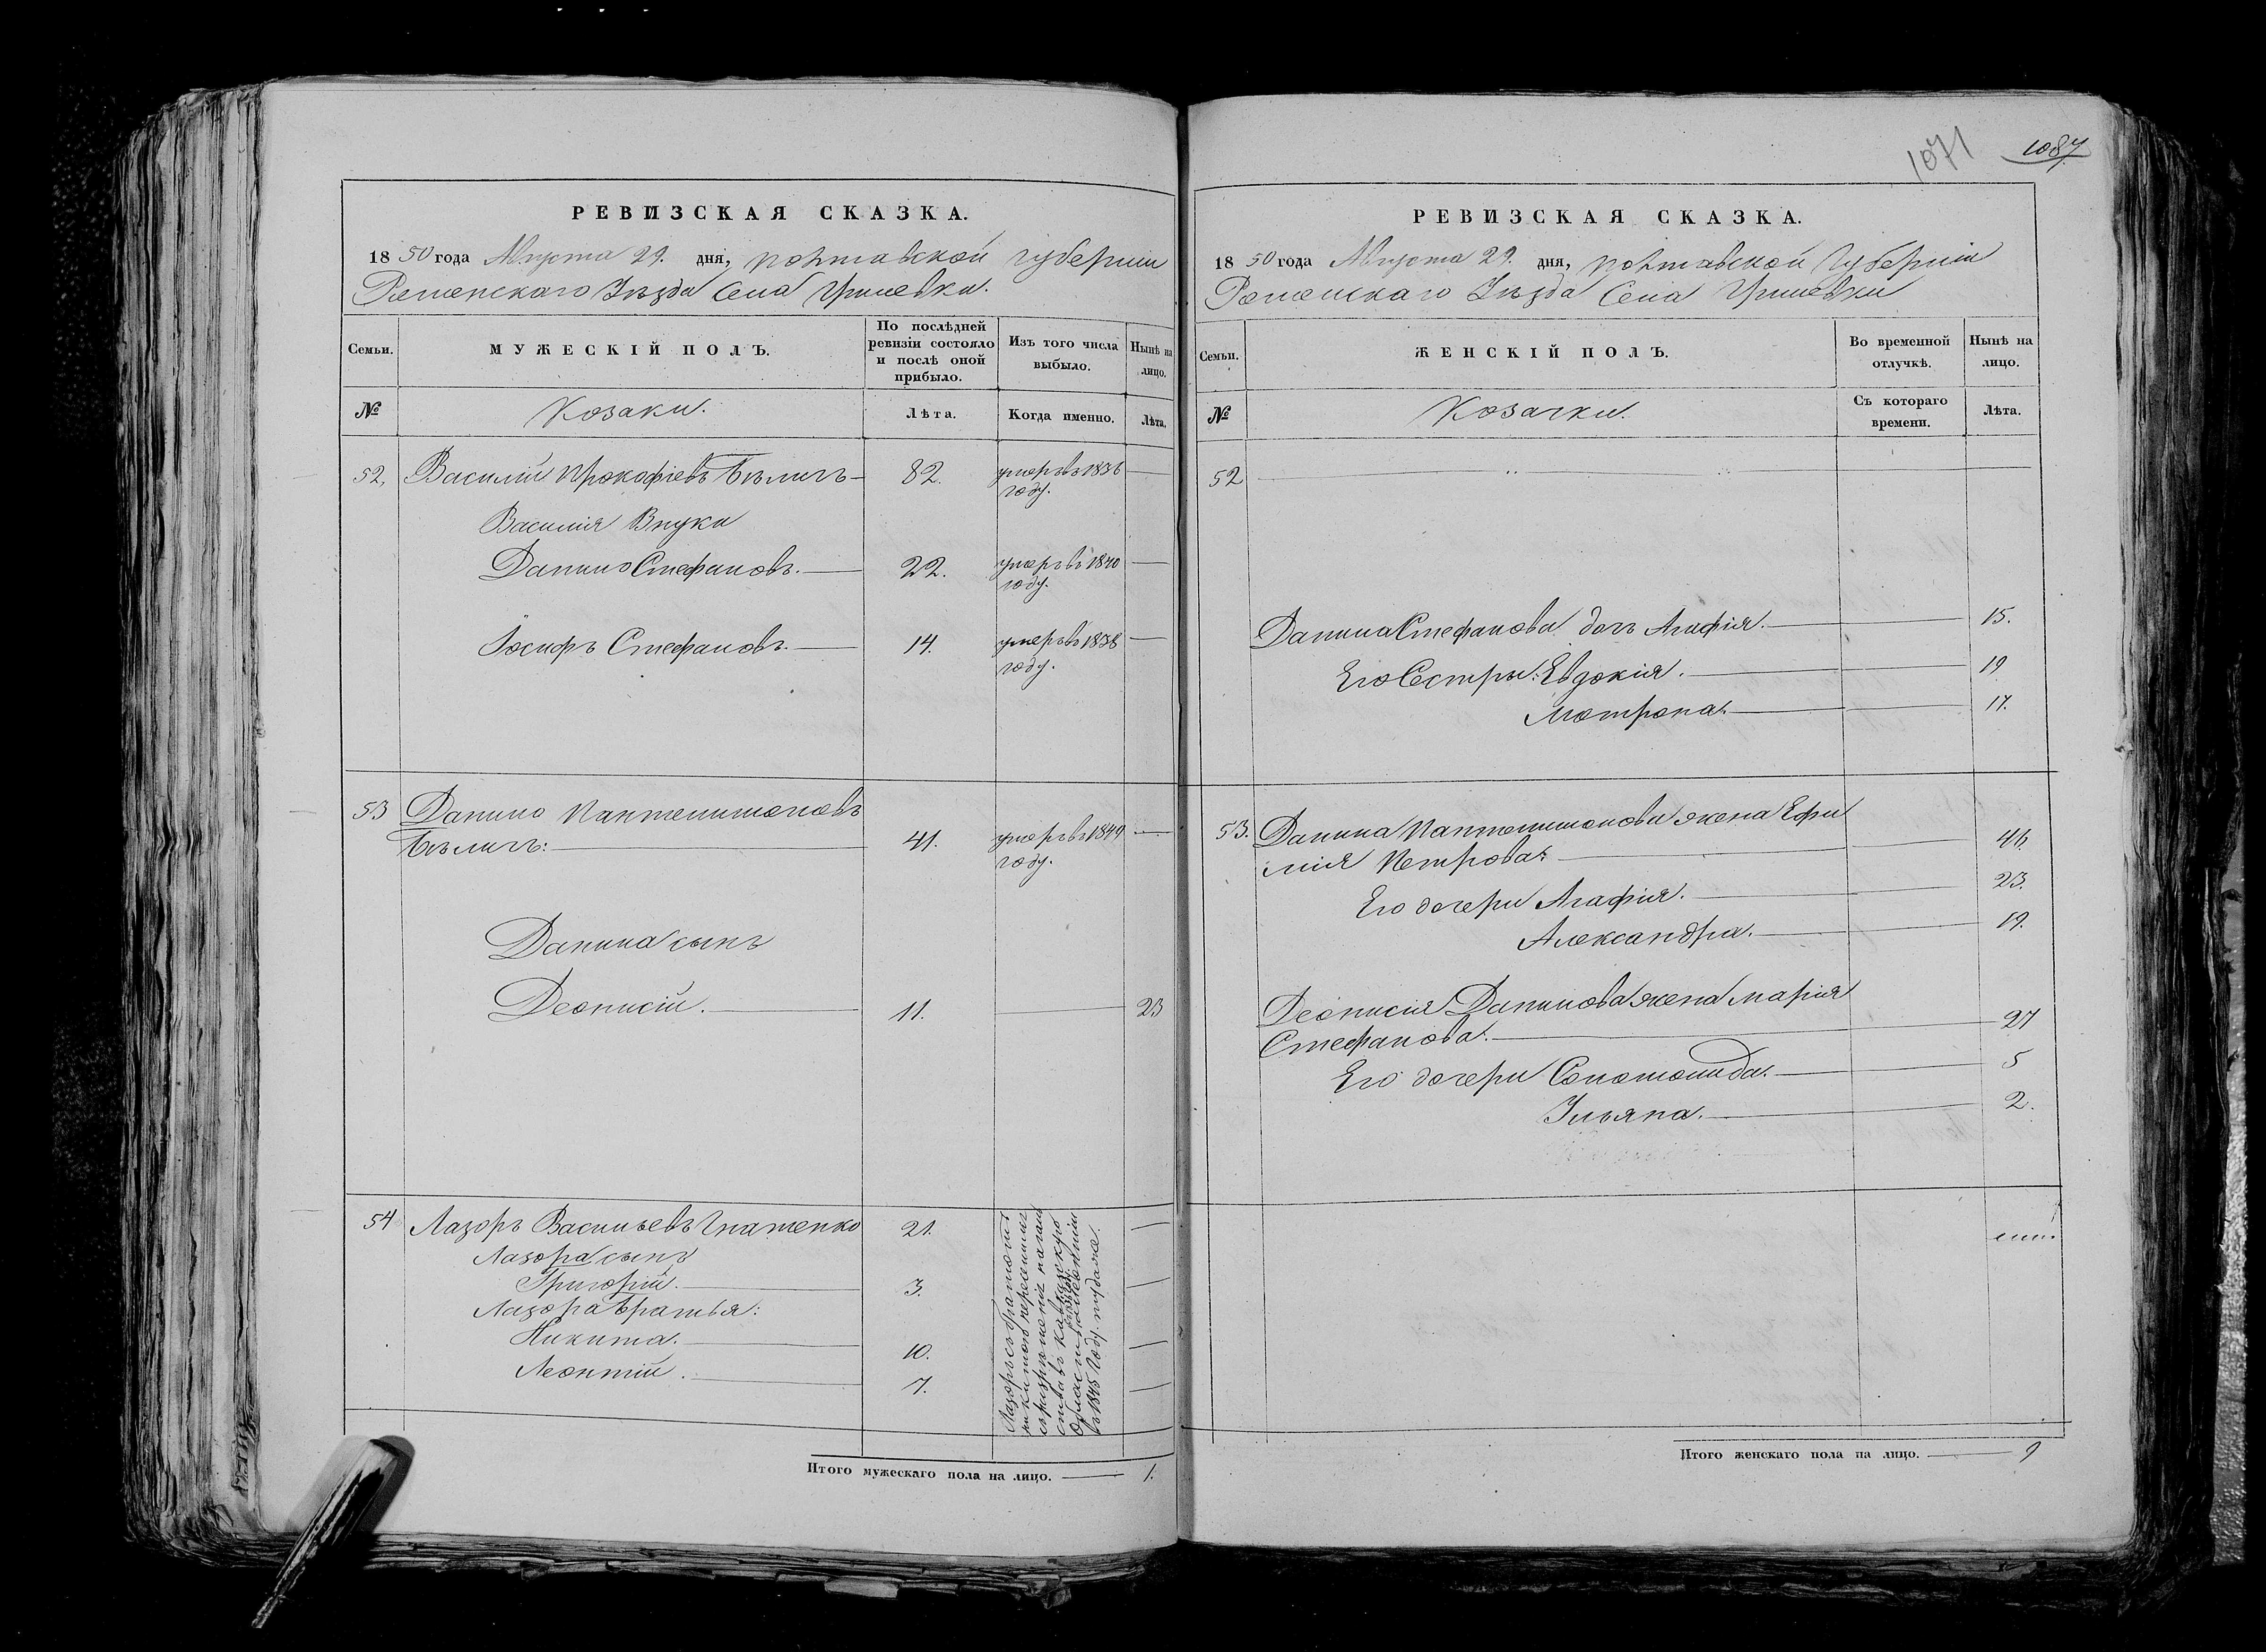 1071 1087
РЕВИЗСКАЯ СКАЗКА.
1850 года Августа 29. дня, Полтавской губерніи
Роменскаго Уѣзда Села Гришевки.
Семьи.
МУЖЕСКІЙ ПОЛЪ.
По послѣдней ревизіи состояло и послѣ оной прибыло.
Изъ того числа выбыло.
Нынѣ на лицо.
№
Козаки.
Лѣта.
Когда именно.
Лѣта.
52. Василій Прокофіевъ Бѣличъ 82. умеръ въ 1836
году.
Василія Внуки
Данило Стефановъ. 22. умеръ въ 1840
году.
Іосифъ Стефановъ. 14. умеръ въ 1838
году.
53 Данило Пантелимоновъ
Бѣличъ: 41. умеръ въ 1849
году.
Данила сынъ
Деонисій. 11. 23
54 Лазоръ Васильевъ Игнатенко 21.
Лазора сынъ
Григорій. 3.
Лазора братья:
Никита. 10.
Леонтій. 7.
Лазоръ съ братомъ
Никитою переселились
съ разрѣшенія
въ 1845 году.
Итого мужескаго пола на лицо. 1.
РЕВИЗСКАЯ СКАЗКА.
1850 года Августа 29. дня, Полтавской Губерніи
Роменскаго Уѣзда Села Гришевки
Семьи.
ЖЕНСКІЙ ПОЛЪ.
Во временной отлучкѣ.
Нынѣ на лицо.
№
Козачки.
Съ котораго времени.
Лѣта.
52
Данила Стефанова дочь Агафія. 15.
Его Сестры: Евдокія. 19
Мотрона. 17.
53. Данила Пантелимонова жена Ефи
мія Петрова: 46.
Его дочери Агафія. 23.
Александра. 19.
Деонисія Данилова жена Марія
Стефанова. 27
Его дочери Соломонида. 5
Ульяна. 2.
Итого женскаго пола на лицо. 9